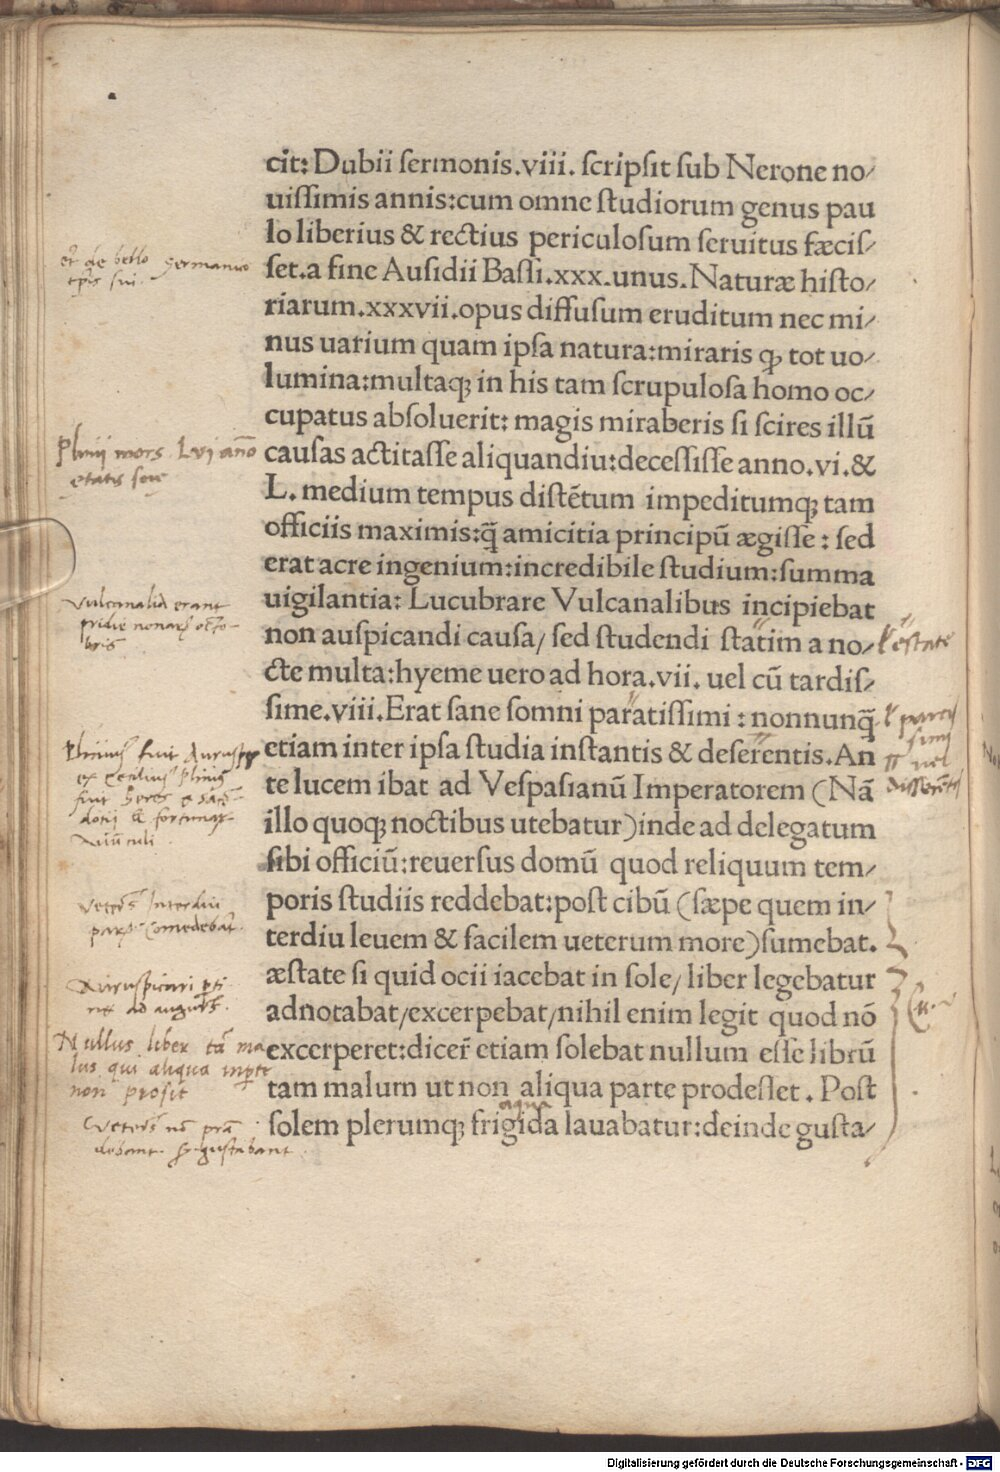 cit: Dubii ſermonis.viii. ſcripſit ſub Nerone no/
uiſſimis annis:cum omne ſtudiorum genus pau
lo liberius & rectius periculoſum ſeruitus fæciſ/
ſet.a fine Auſidii Baſſi.xxx.unus. Naturæ hiſto/
riarum.xxxvii.opus diffuſum eruditum nec mi/
nus uarium quam ipſa natura:miraris ꝙ tot uo/
lumina:multaqꝫ in his tam ſcrupuloſa homo oc/
cupatus abſoluerit: magis miraberis ſi ſcires illũ
cauſas actitaſſe aliquandiu:deceſſiſſe anno.vi.&
L. medium tempus diſtẽtum impeditumqꝫ tam
officiis maximis:q̃ amicitia principũ ægiſſe : ſed
erat acre ingenium:incredibile ſtudium:ſumma
uigilantia: Lucubrare Vulcanalibus incipiebat
non auſpicandi cauſa/ ſed ſtudendi ſtatim a no/
cte multa:hyeme uero ad hora.vii. uel cũ tardiſ/
ſime.viii.Erat ſane ſomni paratiſſimi : nonnunq̃
etiam inter ipſa ſtudia inſtantis & deſerentis.An
te lucem ibat ad Veſpaſianũ Imperatorem (Nã
illo quoqꝫ noctibus utebatur)inde ad delegatum
ſibi officiũ:reuerſus domũ quod reliquum tem/
poris ſtudiis reddebat:poſt cibũ (ſæpe quem in/
terdiu leuem & facilem ueterum more)ſumebat.
æſtate ſi quid ocii iacebat in ſole/ liber legebatur
adnotabat/excerpebat/nihil enim legit quod nõ
excerperet:dicer̃ etiam ſolebat nullum eſſe librũ
tam malum ut non aliqua parte prodeſſet . Poſt
aqua
ſolem plerumqꝫ frigida lauabatur:deinde guſta/
et de bello germanico
Plinij mors Lvi año
etatis
Vulcanalia erant
pridie
estate
fuit
Plinius
fuit
Nullus liber tã ma
lus qui aliqua
non prosit
Digitalisierung gefördert durch die Deutsche Forschungsgemeinschaft - DFG